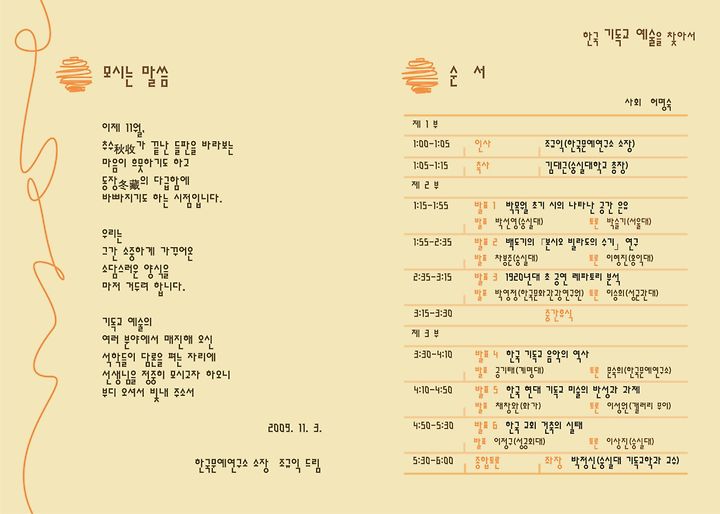 한국 기독교 예술을 찾아서
모시는 말씀
이제 11월,
추수秋收가 끝난 들판을 바라보는
마음이 흐뭇하기도 하고
동장冬藏의 다급함에
바빠지기도 하는 시점입니다.
우리는
그간 소중하게 가꾸어온
소담스러운 양식을
마저 거두려 합니다.
기독교 예술의
여러 분야에서 매진해 오신
석학들이 담론을 펴는 자리에
선생님을 정중히 모시고자 하오니
부디 오셔서 빛내 주소서
2009. 11. 3.
한국문예연구소 소장 조규익 드림
순 서
사회 허명숙
제 1 부
1:00-1:05 인사 조규익(한국문예연구소 소장)
1:05-1:15 축사 김대근(숭실대학교 총장)
제 2 부
1:15-1:55 발표 1 박목월 초기 시의 나타난 공간 은유
발표 박선영(숭실대) 토론 박슬기(서울대)
1:55-2:35 발표 2 백도기의 「본시오 빌라도의 수기」 연구
발표 차봉준(숭실대) 토론 이형진(홍익대)
2:35-3:15 발표 3 1920년대 초 공연 레파토리 분석
발표 박영정(한국문화관광연구원) 토론 이승희(성균관대)
3:15-3:30 중간휴식
제 3 부
3:30-4:10 발표 4 한국 기독교 음악의 역사
발표 공기태(계명대) 토론 문숙희(한국문예연구소)
4:10-4:50 발표 5 한국 현대 기독교 미술의 반성과 과제
발표 채창완(화가) 토론 이성원(갤러리 무이)
4:50-5:30 발표 6 한국 교회 건축의 실태
발표 이정구(성공회대) 토론 이상진(숭실대)
5:30-6:00 종합토론 좌장 박정신(숭실대 기독교학과 교수)